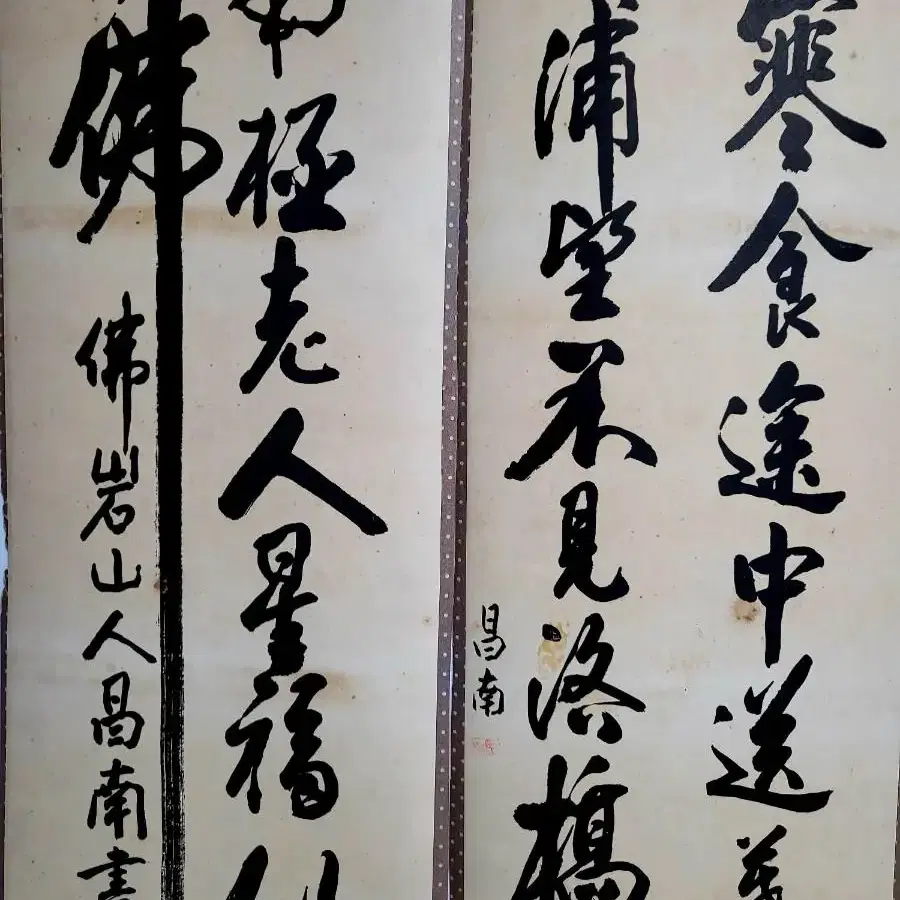 寒食途中送
浦望不見洛橋
昌南
極老人星福
佛
佛岩山人昌南書